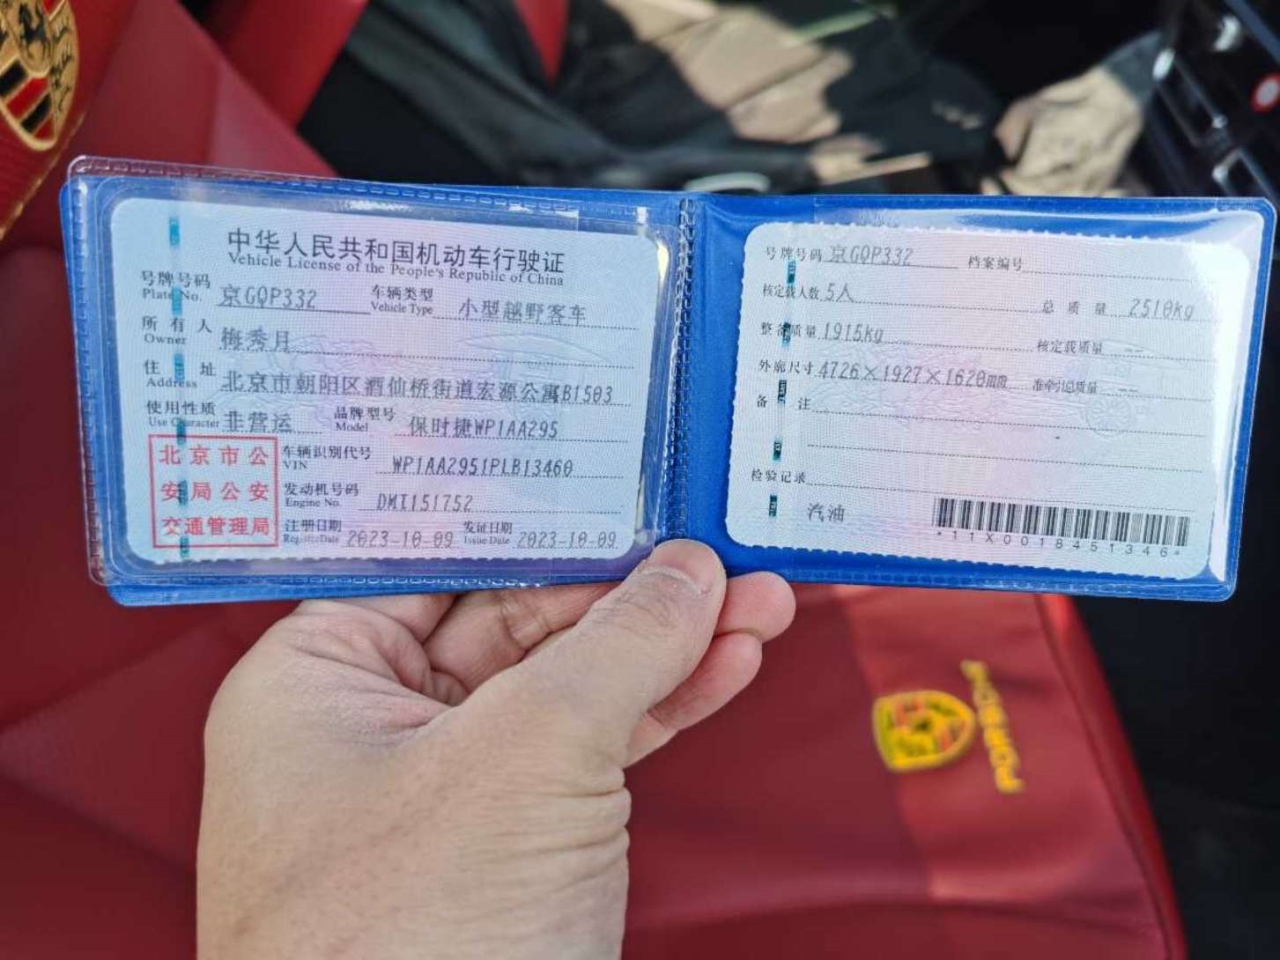 中华人民共和国机动车行驶证
Vehicle License of the People's Republic of China
号牌号码 京GQP332 车辆类型 小型越野客车
Plate No. Vehicle Type
所有人 梅秀月
Owner
住址 北京市朝阳区酒仙桥街道宏源公寓B1503
Address
使用性质 非营运 品牌型号 保时捷WP1AA295
Use Character Model
北京市公
安局公安
交通管理局
车辆识别代号 WP1AA2951PLB13460
VIN
发动机号码 DMT151752
Engine No.
注册日期 2023-10-09 发证日期 2023-10-09
Register Date Issue Date
号牌号码 京GQP332 档案编号
核定载人数 5人 总质量 2510kg
整备质量 1915kg 核定载质量 --
外廓尺寸 4726×1927×1620mm 准牵引总质量 --
备注
检验记录
汽油
*11X0018451346*
PORSCHE